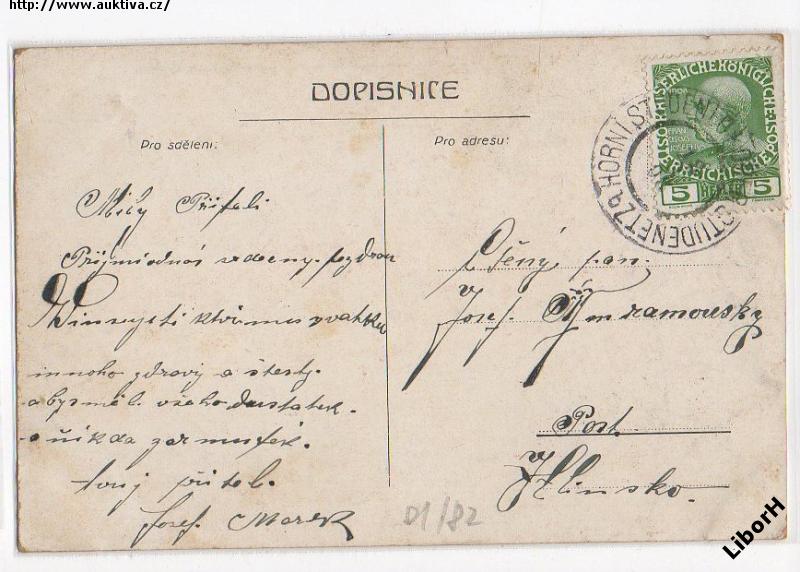 http://www.auktiva.cz/
DOPISNICE
Pro sdělení:
Pro adresu:
KAISERLICHE KÖNIGLICHE ÖSTERREICHISCHE POST
5 HELLER 5
HORNÍ STUDENETZ
Milý Příteli
Přijmi srdečný pozdrav
K tvému svátku
mnoho zdraví a štestí.
abysměl všeho dostatek.
a nikda zarmutek.
tvuj přítel.
Josef Marek
Ctěný pan.
Josef
Post.
Hlinsko.
01/82
LiborH